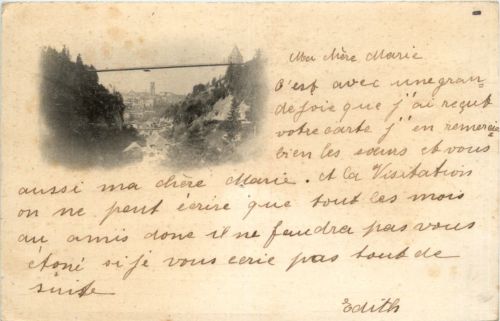 Ma chère Marie
C'est avec une gran-
de joie que j'ai reçut
votre carte j'en rémercie
bien les sœurs et vous
aussi ma chère Marie. et la Visitation
on ne peut écrire que tout les mois
au amis donc il ne faudra pas vous
étoné si je vous ecrie pas tout de
suite
Edith